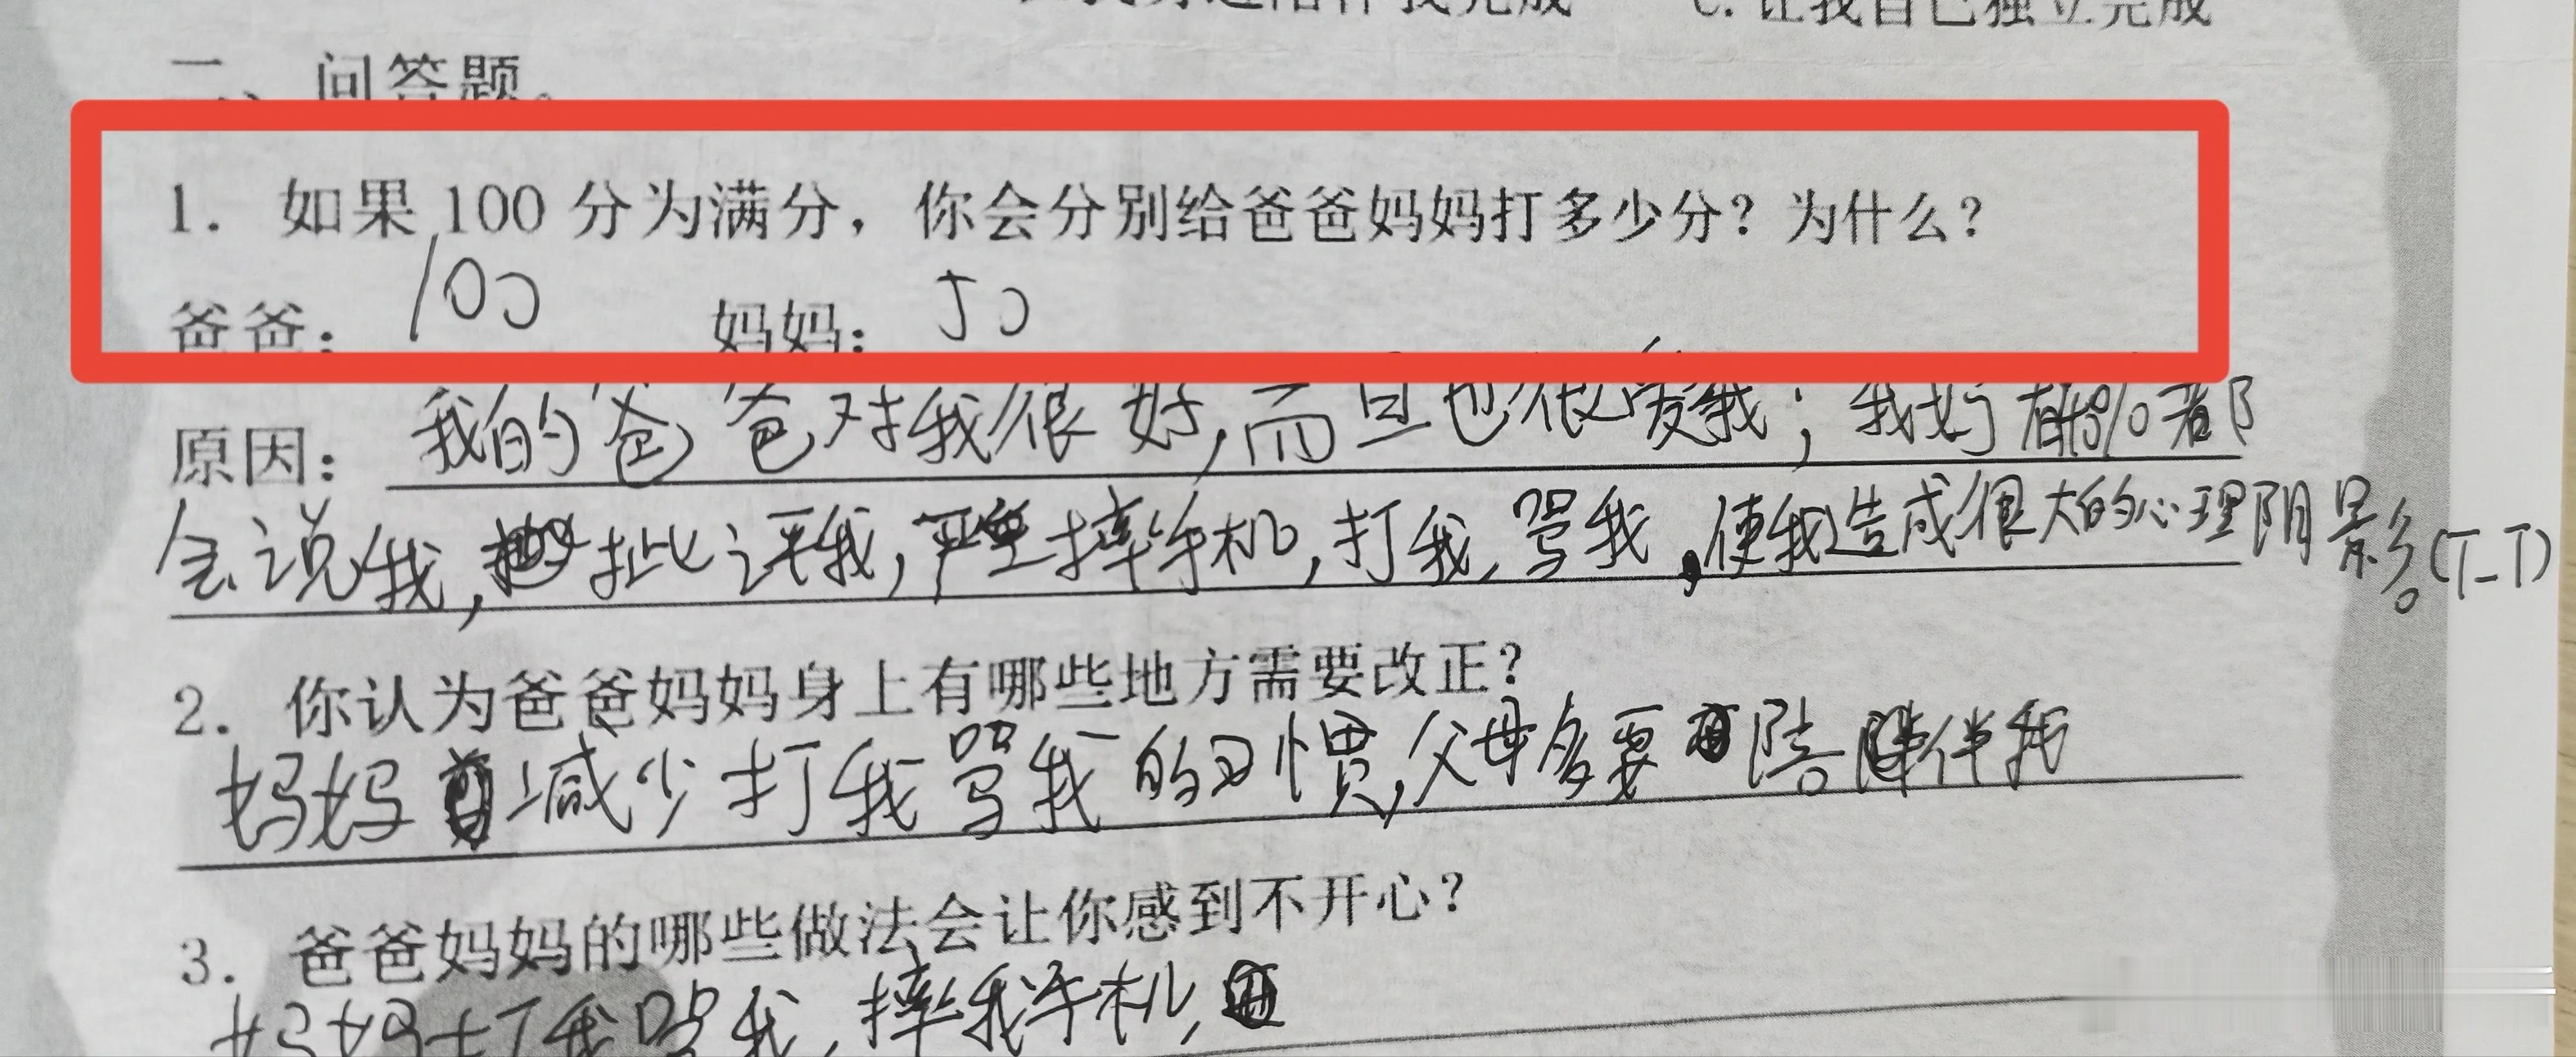 C. 让我自己独立完成
二、问答题。
1. 如果 100 分为满分，你会分别给爸爸妈妈打多少分？为什么？
爸爸： 100 妈妈： 50
原因： 我的爸爸对我很好，而且也很爱我；我妈 都
会说我， 批评我，严重摔手机，打我，骂我，使我造成很大的心理阴影。(T_T)
2. 你认为爸爸妈妈身上有哪些地方需要改正？
妈妈减少打我骂我的习惯，父母多要陪伴我
3. 爸爸妈妈的哪些做法会让你感到不开心？
妈妈打我骂我，摔我手机，